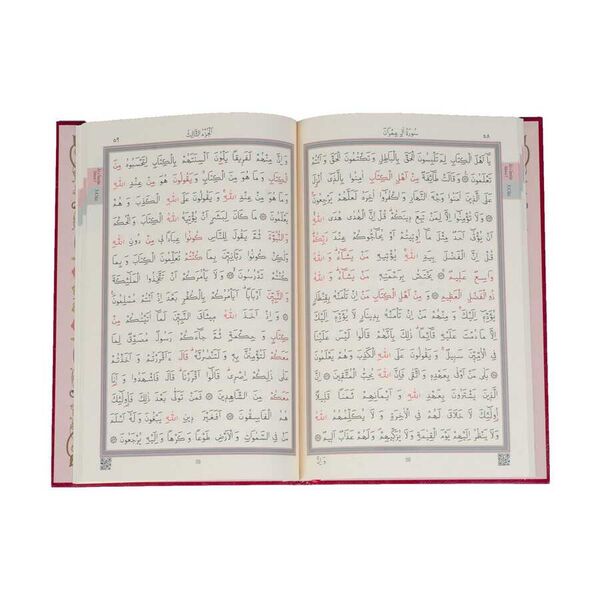 سُورَةُ اٰلِ عِمْرٰنَ ٥٨
يَٓا اَهْلَ الْكِتَابِ لِمَ تَلْبِسُونَ الْحَقَّ بِالْبَاطِلِ وَتَكْتُمُونَ الْحَقَّ وَاَنْتُمْ
تَعْلَمُونَ ۞ وَقَالَتْ طَٓائِفَةٌ مِنْ اَهْلِ الْكِتَابِ اٰمِنُوا بِالَّذٖٓي
اُنْزِلَ عَلَى الَّذٖينَ اٰمَنُوا وَجْهَ النَّهَارِ وَاكْفُرُٓوا اٰخِرَهُ لَعَلَّهُمْ يَرْجِعُونَ
۞ وَلَا تُؤْمِنُٓوا اِلَّا لِمَنْ تَبِعَ دٖينَكُمْ قُلْ اِنَّ الْهُدٰى هُدَى اللّٰهِ
اَنْ يُؤْتٰٓى اَحَدٌ مِثْلَ مَٓا اُو۫تٖيتُمْ اَوْ يُحَٓاجُّوكُمْ عِنْدَ رَبِّكُمْ
قُلْ اِنَّ الْفَضْلَ بِيَدِ اللّٰهِ يُؤْتٖيهِ مَنْ يَشَٓاءُ وَاللّٰهُ
وَاسِعٌ عَلٖيمٌ ۞ يَخْتَصُّ بِرَحْمَتِهٖ مَنْ يَشَٓاءُ وَاللّٰهُ
ذُو الْفَضْلِ الْعَظٖيمِ ۞ وَمِنْ اَهْلِ الْكِتَابِ مَنْ اِنْ تَأْمَنْهُ بِقِنْطَارٍ
يُؤَدِّهٖٓ اِلَيْكَ وَمِنْهُمْ مَنْ اِنْ تَأْمَنْهُ بِدٖينَارٍ لَا يُؤَدِّهٖٓ اِلَيْكَ
اِلَّا مَا دُمْتَ عَلَيْهِ قَٓائِمًا ذٰلِكَ بِاَنَّهُمْ قَالُوا لَيْسَ عَلَيْنَا
فِي الْاُمِّيّٖنَ سَبٖيلٌ وَيَقُولُونَ عَلَى اللّٰهِ الْكَذِبَ وَهُمْ يَعْلَمُونَ
۞ بَلٰى مَنْ اَوْفٰى بِعَهْدِهٖ وَاتَّقٰى فَاِنَّ اللّٰهَ يُحِبُّ الْمُتَّقٖينَ ۞ اِنَّ
الَّذٖينَ يَشْتَرُونَ بِعَهْدِ اللّٰهِ وَاَيْمَانِهِمْ ثَمَنًا قَلٖيلًا
اُو۬لٰٓئِكَ لَا خَلَاقَ لَهُمْ فِي الْاٰخِرَةِ وَلَا يُكَلِّمُهُمُ اللّٰهُ
وَلَا يَنْظُرُ اِلَيْهِمْ يَوْمَ الْقِيٰمَةِ وَلَا يُزَكّٖيهِمْ وَلَهُمْ عَذَابٌ اَلٖيمٌ ۞
اَلْجُزْءُ الثَّالِثُ ٥٩
وَاِنَّ مِنْهُمْ لَفَرٖيقًا يَلْوُ۫نَ اَلْسِنَتَهُمْ بِالْكِتَابِ لِتَحْسَبُوهُ مِنَ
الْكِتَابِ وَمَا هُوَ مِنَ الْكِتَابِ وَيَقُولُونَ هُوَ مِنْ عِنْدِ اللّٰهِ
وَمَا هُوَ مِنْ عِنْدِ اللّٰهِ وَيَقُولُونَ عَلَى اللّٰهِ الْكَذِبَ وَهُمْ
يَعْلَمُونَ ۞ مَا كَانَ لِبَشَرٍ اَنْ يُؤْتِيَهُ اللّٰهُ الْكِتَابَ وَالْحُكْمَ
وَالنُّبُوَّةَ ثُمَّ يَقُولَ لِلنَّاسِ كُونُوا عِبَادًا لٖي مِنْ دُونِ اللّٰهِ
وَلٰكِنْ كُونُوا رَبَّانِيّٖنَ بِمَا كُنْتُمْ تُعَلِّمُونَ الْكِتَابَ وَبِمَا
كُنْتُمْ تَدْرُسُونَ ۞ وَلَا يَأْمُرَكُمْ اَنْ تَتَّخِذُوا الْمَلٰٓئِكَةَ
وَالنَّبِيّٖنَ اَرْبَابًا اَيَأْمُرُكُمْ بِالْكُفْرِ بَعْدَ اِذْ اَنْتُمْ مُسْلِمُونَ
۞ وَاِذْ اَخَذَ اللّٰهُ مٖيثَاقَ النَّبِيّٖنَ لَمَٓا اٰتَيْتُكُمْ مِنْ
كِتَابٍ وَحِكْمَةٍ ثُمَّ جَٓاءَكُمْ رَسُولٌ مُصَدِّقٌ لِمَا
مَعَكُمْ لَتُؤْمِنُنَّ بِهٖ وَلَتَنْصُرُنَّهُ قَالَ ءَاَقْرَرْتُمْ وَاَخَذْتُمْ
عَلٰى ذٰلِكُمْ اِصْرٖي قَالُٓوا اَقْرَرْنَا قَالَ فَاشْهَدُوا وَاَنَا
مَعَكُمْ مِنَ الشَّاهِدٖينَ ۞ فَمَنْ تَوَلّٰى بَعْدَ ذٰلِكَ فَاُو۬لٰٓئِكَ
هُمُ الْفَاسِقُونَ ۞ اَفَغَيْرَ دٖينِ اللّٰهِ يَبْغُونَ وَلَهُٓ اَسْلَمَ
مَنْ فِي السَّمٰوَاتِ وَالْاَرْضِ طَوْعًا وَكَرْهًا وَاِلَيْهِ يُرْجَعُونَ ۞